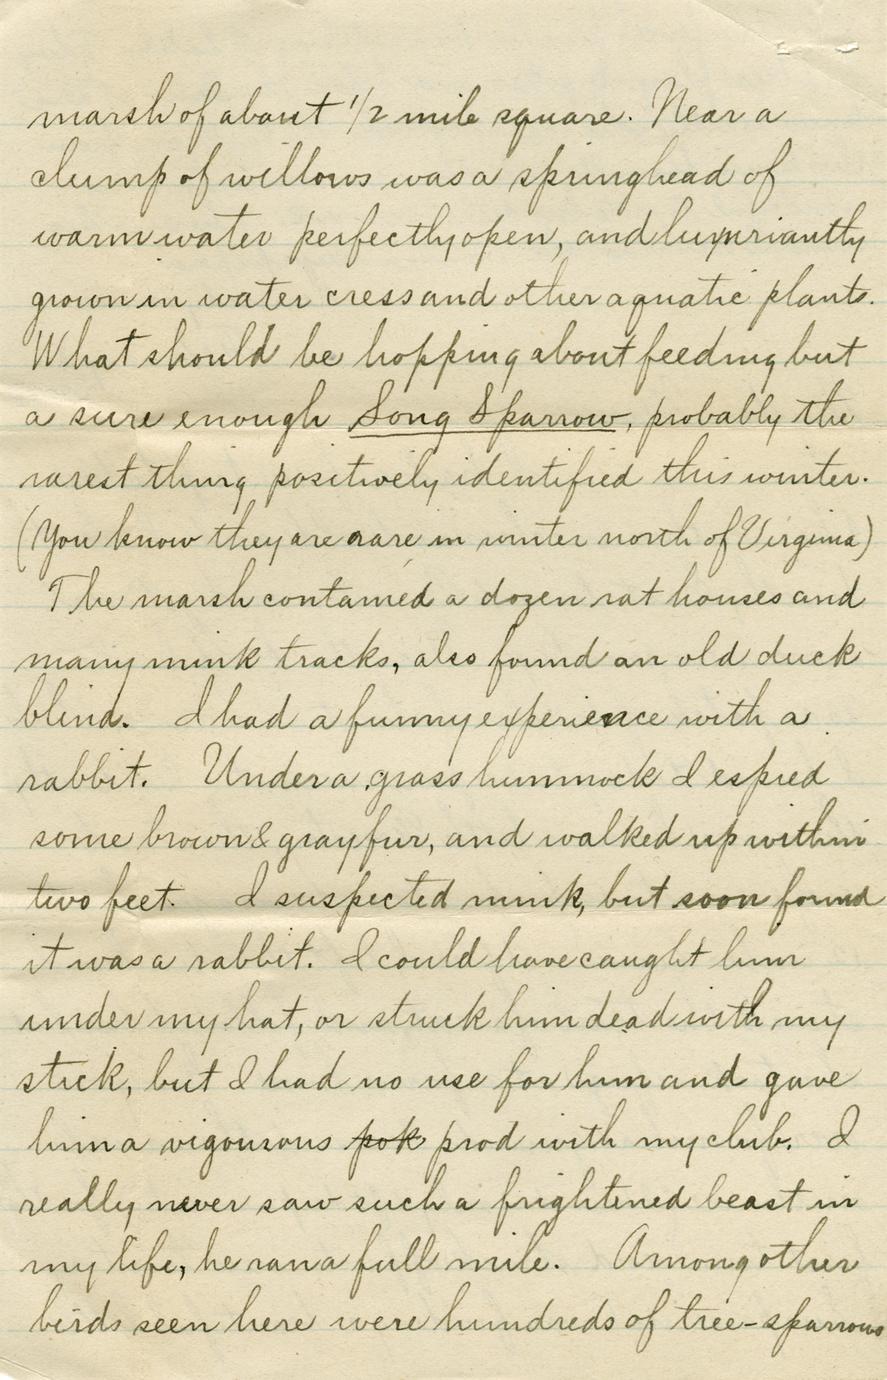 marsh of about 1/2 mile square. Near a
clump of willows was a springhead of
warm water perfectly open, and luxuriantly
grown in water cress and other aquatic plants.
What should be hopping about feeding but
a sure enough Song Sparrow, probably the
rarest thing positively identified this winter.
(You know they are rare in winter north of Virginia)
The marsh contained a dozen rat houses and
many mink tracks, also found an old duck
blind. I had a funny experience with a
rabbit. Under a grass hummock I espied
some brown & gray fur, and walked up within
two feet. I suspected mink, but soon found
it was a rabbit. I could have caught him
under my hat, or struck him dead with my
stick, but I had no use for him and gave
him a vigourous pok prod with my club. I
really never saw such a frightened beast in
my life, he ran a full mile. Among other
birds seen here were hundreds of tree-sparrows